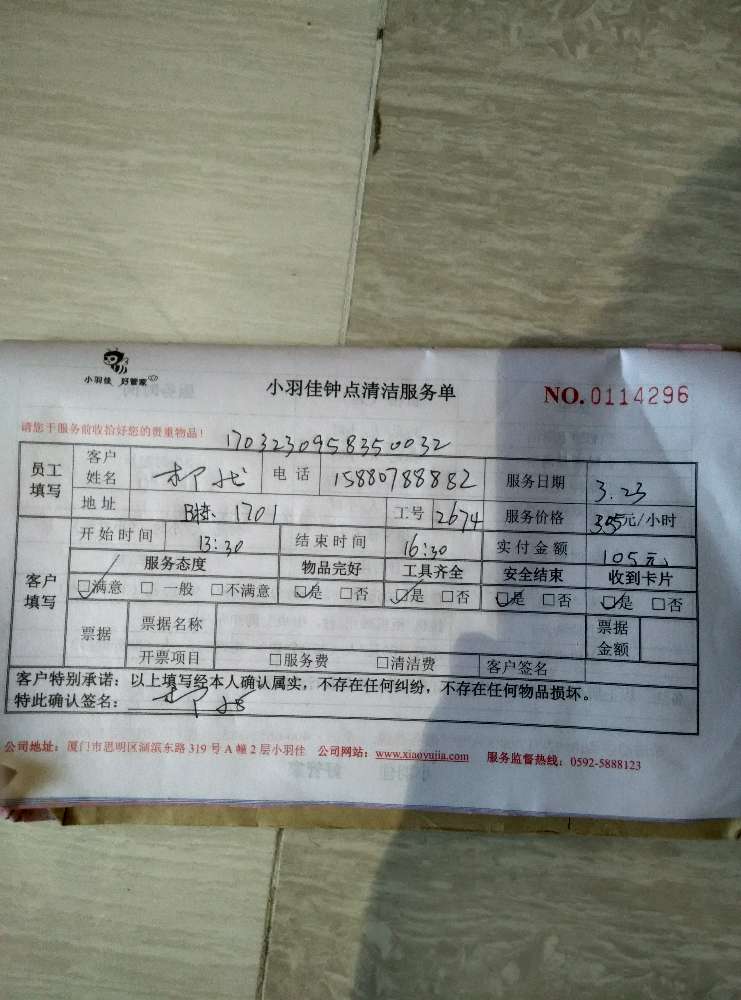 小羽佳 好管家
小羽佳钟点清洁服务单
NO. 0114296
请您于服务前收拾好您的贵重物品！
170323095835 0032
员工填写 客户姓名 电话 15880788882 服务日期 3.23
地址 B栋 1701 工号 2674 服务价格 35元/小时
客户填写 开始时间 13:30 结束时间 16:30 实付金额 105元
服务态度 物品完好 工具齐全 安全结束 收到卡片
☑满意 □一般 □不满意 ☑是 □否 ☑是 □否 ☑是 □否 ☑是 □否
票据 票据名称 票据金额
开票项目 □服务费 □清洁费 客户签名
客户特别承诺：以上填写经本人确认属实，不存在任何纠纷，不存在任何物品损坏。
特此确认签名：
公司地址：厦门市思明区湖滨东路 319 号 A 幢 2 层小羽佳 公司网站：www.xiaoyujia.com 服务监督热线：0592-5888123